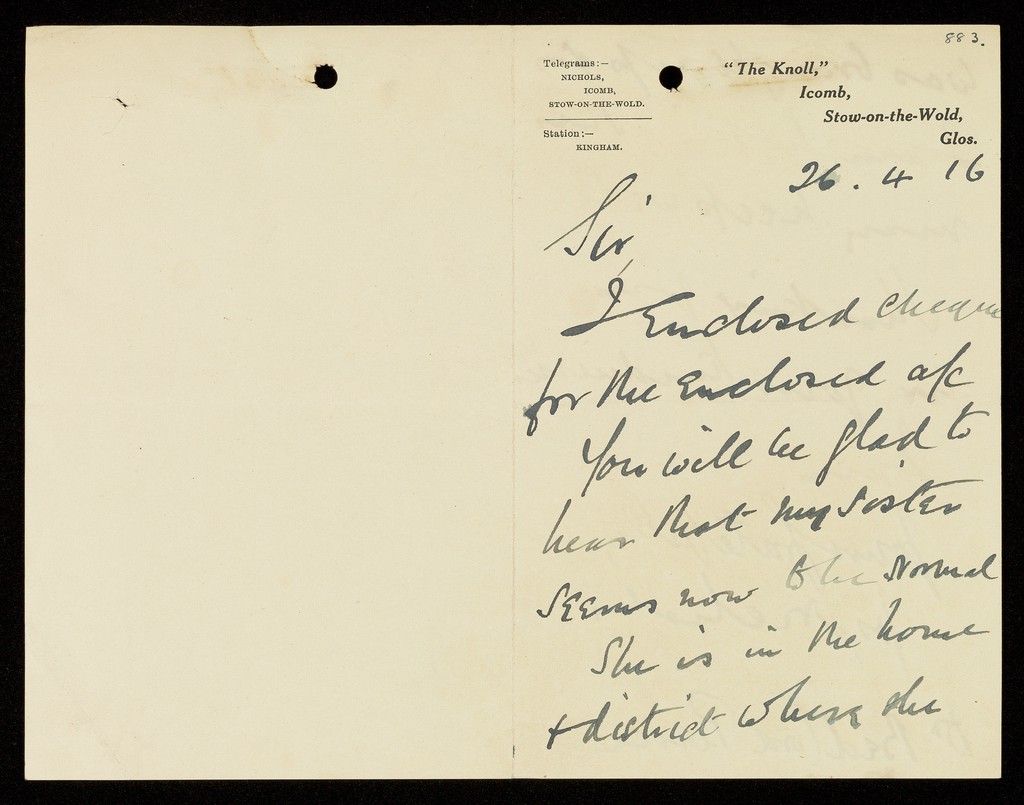 883.
Telegrams:—
NICHOLS,
ICOMB,
STOW-ON-THE-WOLD.
Station:—
KINGHAM.
"The Knoll,"
Icomb,
Stow-on-the-Wold,
Glos.
26.4 16
Sir,
I Enclosed cheque
for the Enclosed a/c
You will be glad to
hear that my sister
seems now to be Normal
She is in the home
+ district where she